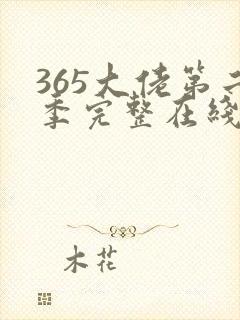 365大佬第二
季完整在线
木花